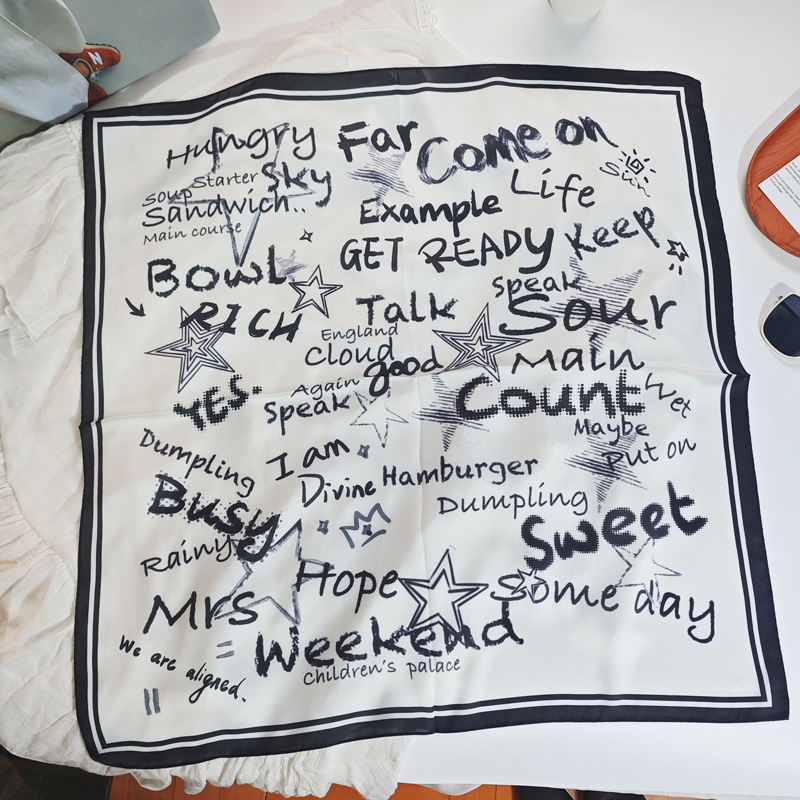 Hungry
Far
Come on
Soup
Starter
Sky
Sandwich..
Main course
Example
Life
Sun
GET READY
Keep
Bowl
Speak
RICH
Talk
Sour
England
Cloud
good
Main
Again
YES.
Speak
Count
Wet
Maybe
Put on
Dumpling
I am
Divine
Hamburger
Dumpling
Busy
Sweet
Rainy
Hope
Some day
Mrs
Weekend
We are aligned.
Children's palace
N